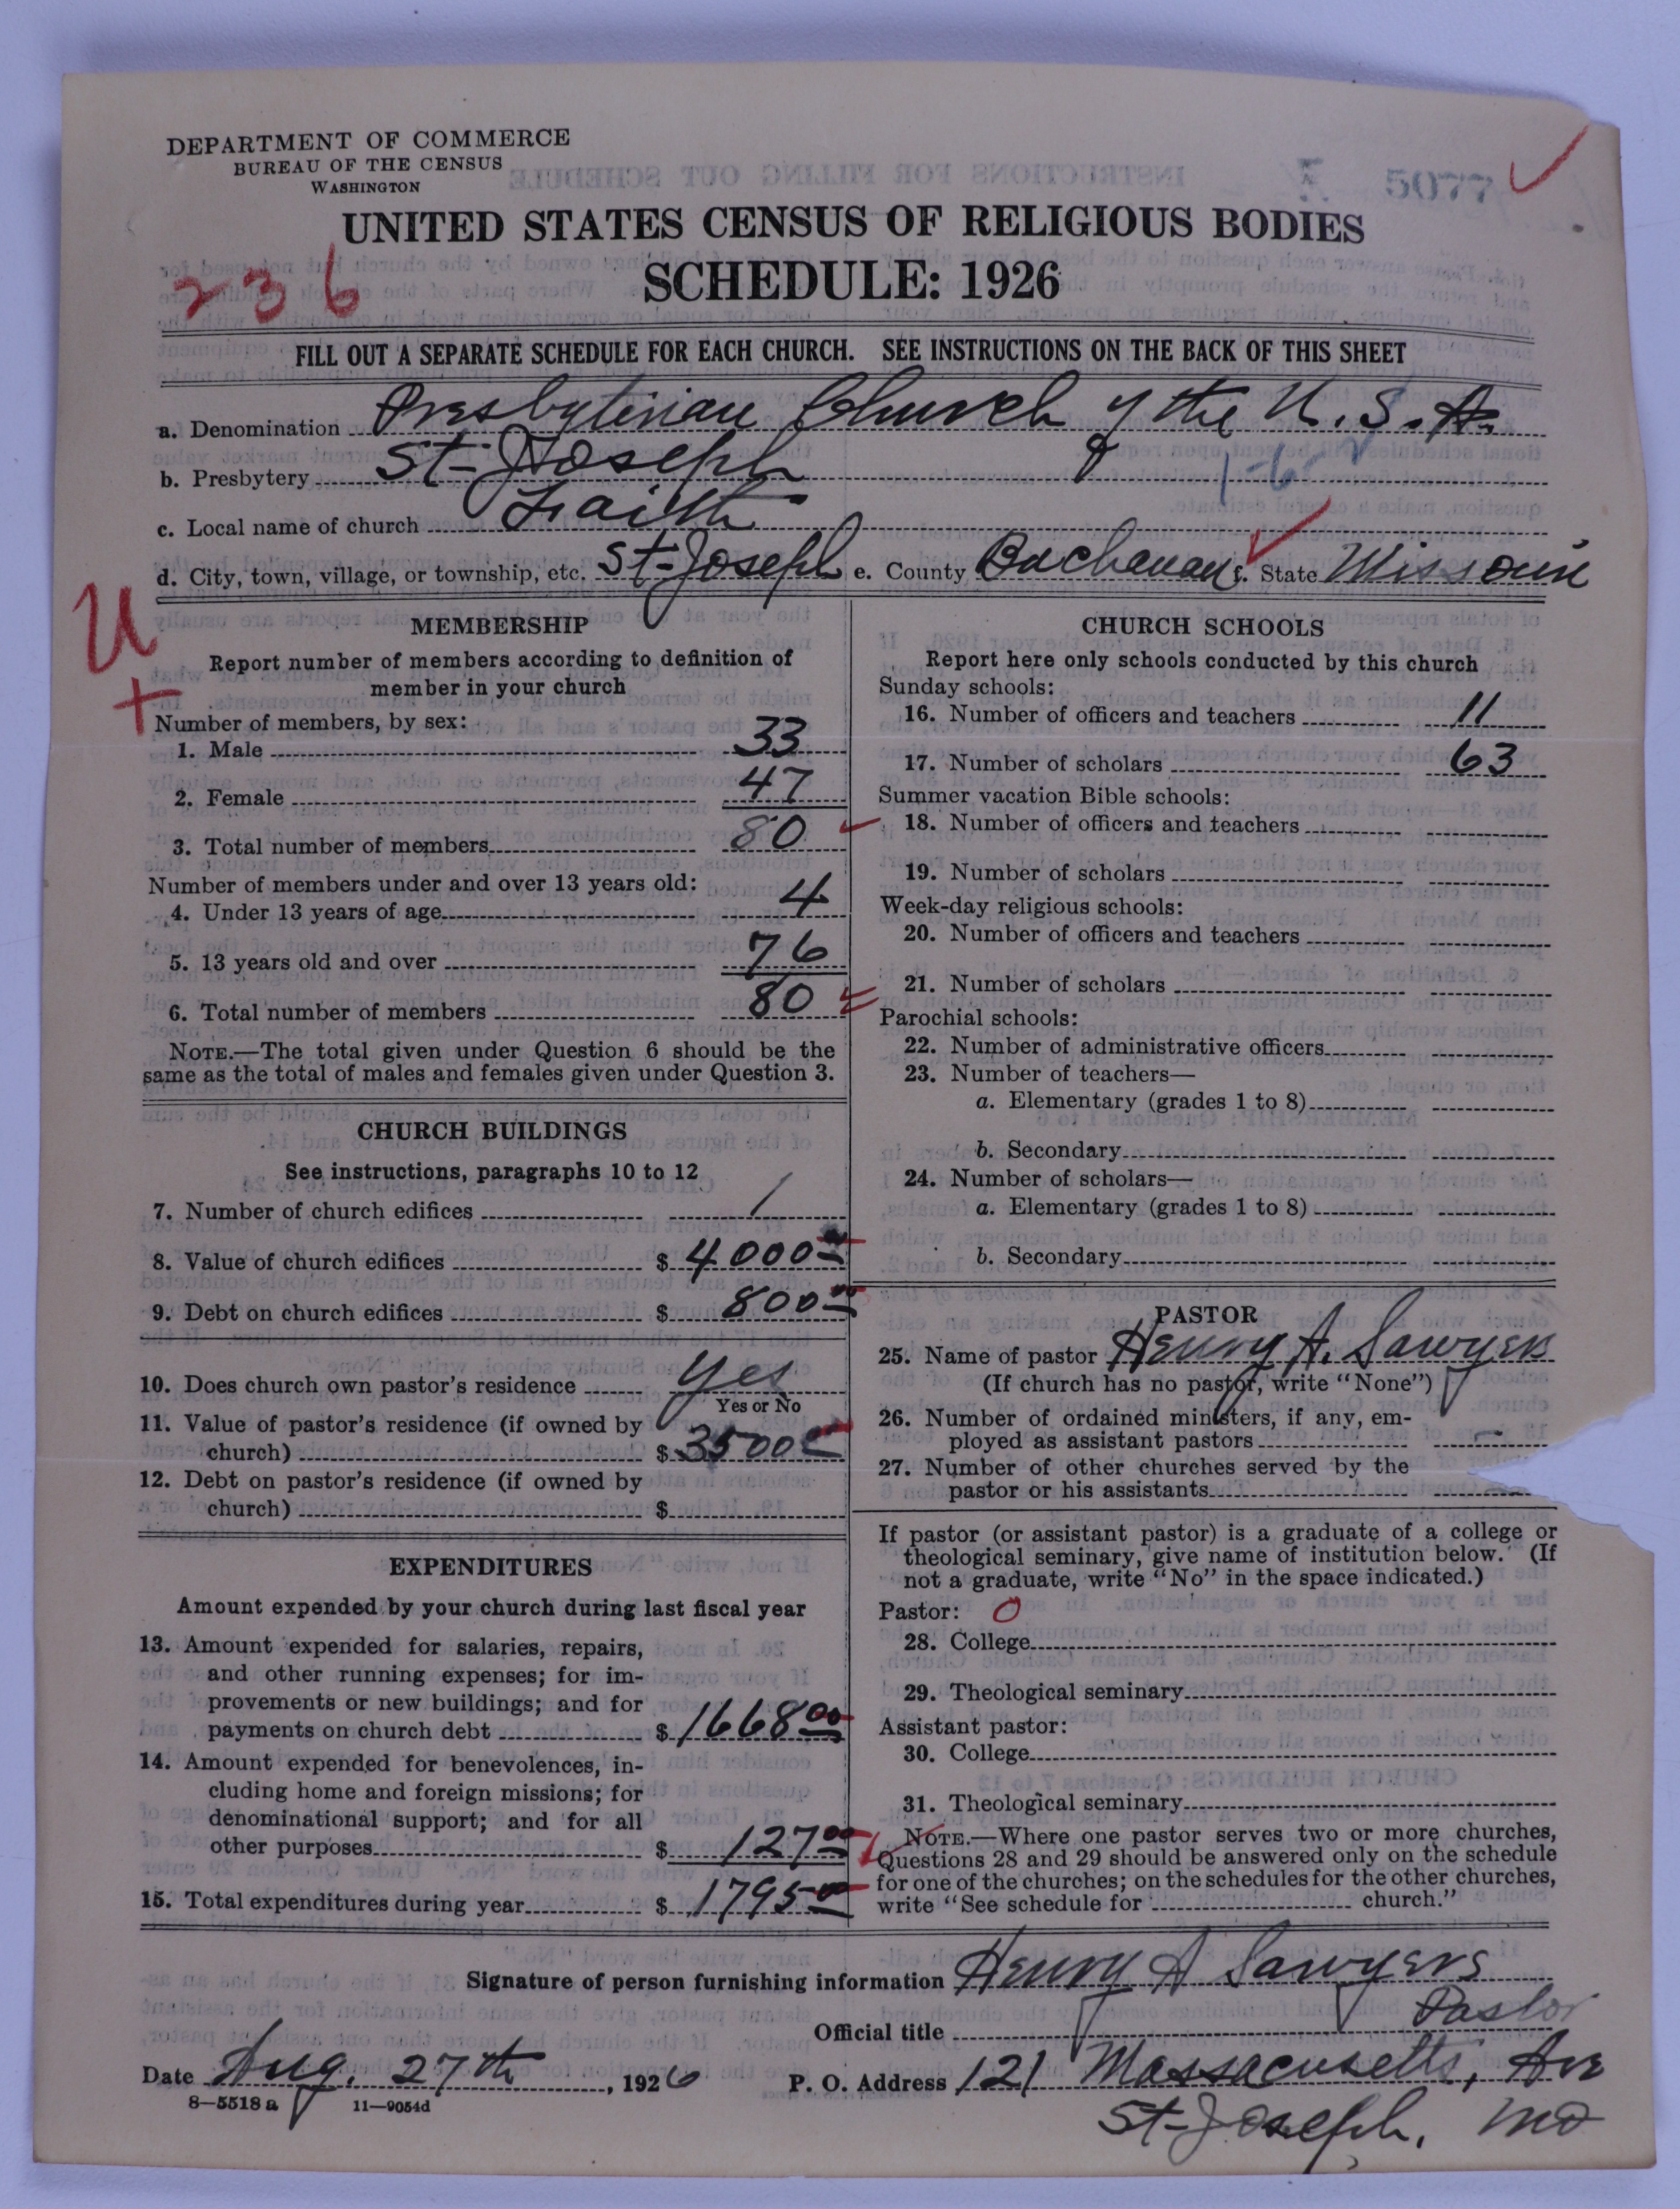 DEPARTMENT OF COMMERCE
BUREAU OF THE CENSUS
WASHINGTON
5077
UNITED STATES CENSUS OF RELIGIOUS BODIES
SCHEDULE: 1926
236
FILL OUT A SEPARATE SCHEDULE FOR EACH CHURCH. SEE INSTRUCTIONS ON THE BACK OF THIS SHEET
a. Denomination Presbyterian Church of the U.S.A.
b. Presbytery St-Joseph
c. Local name of church Faith
d. City, town, village, or township, etc. St-Joseph e. County Buchanan f. State Missouri
U
+
MEMBERSHIP
Report number of members according to definition of
member in your church
Number of members, by sex:
1. Male 33
2. Female 47
3. Total number of members 80
Number of members under and over 13 years old:
4. Under 13 years of age 4
5. 13 years old and over 76
6. Total number of members 80
NOTE.—The total given under Question 6 should be the
same as the total of males and females given under Question 3.
CHURCH BUILDINGS
See instructions, paragraphs 10 to 12
7. Number of church edifices 1
8. Value of church edifices $ 4000
9. Debt on church edifices $ 800
10. Does church own pastor's residence yes
Yes or No
11. Value of pastor's residence (if owned by
church) $ 3500
12. Debt on pastor's residence (if owned by
church) $
EXPENDITURES
Amount expended by your church during last fiscal year
13. Amount expended for salaries, repairs,
and other running expenses; for im-
provements or new buildings; and for
payments on church debt $ 1668 00
14. Amount expended for benevolences, in-
cluding home and foreign missions; for
denominational support; and for all
other purposes $ 127 00
15. Total expenditures during year $ 1795 00
CHURCH SCHOOLS
Report here only schools conducted by this church
Sunday schools:
16. Number of officers and teachers 11
17. Number of scholars 63
Summer vacation Bible schools:
18. Number of officers and teachers
19. Number of scholars
Week-day religious schools:
20. Number of officers and teachers
21. Number of scholars
Parochial schools:
22. Number of administrative officers
23. Number of teachers—
a. Elementary (grades 1 to 8)
b. Secondary
24. Number of scholars—
a. Elementary (grades 1 to 8)
b. Secondary
PASTOR
25. Name of pastor Henry A. Sawyers
(If church has no pastor, write "None")
26. Number of ordained ministers, if any, em-
ployed as assistant pastors
27. Number of other churches served by the
pastor or his assistants
If pastor (or assistant pastor) is a graduate of a college or
theological seminary, give name of institution below. (If
not a graduate, write "No" in the space indicated.)
Pastor: O
28. College
29. Theological seminary
Assistant pastor:
30. College
31. Theological seminary
NOTE.—Where one pastor serves two or more churches,
Questions 28 and 29 should be answered only on the schedule
for one of the churches; on the schedules for the other churches,
write "See schedule for church."
Signature of person furnishing information Henry A Sawyers
Official title Pastor
Date Aug. 27th, 1926 P. O. Address 121 Massacusetts, Ave
8-5518 a 11-9054d
St-Joseph, Mo